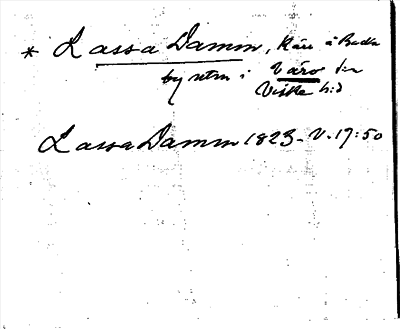 * Lassa Damm, Kärr å Backa
by utm i Värö sn
Viske hd
Lassa Damm 1823 - V. 17:50